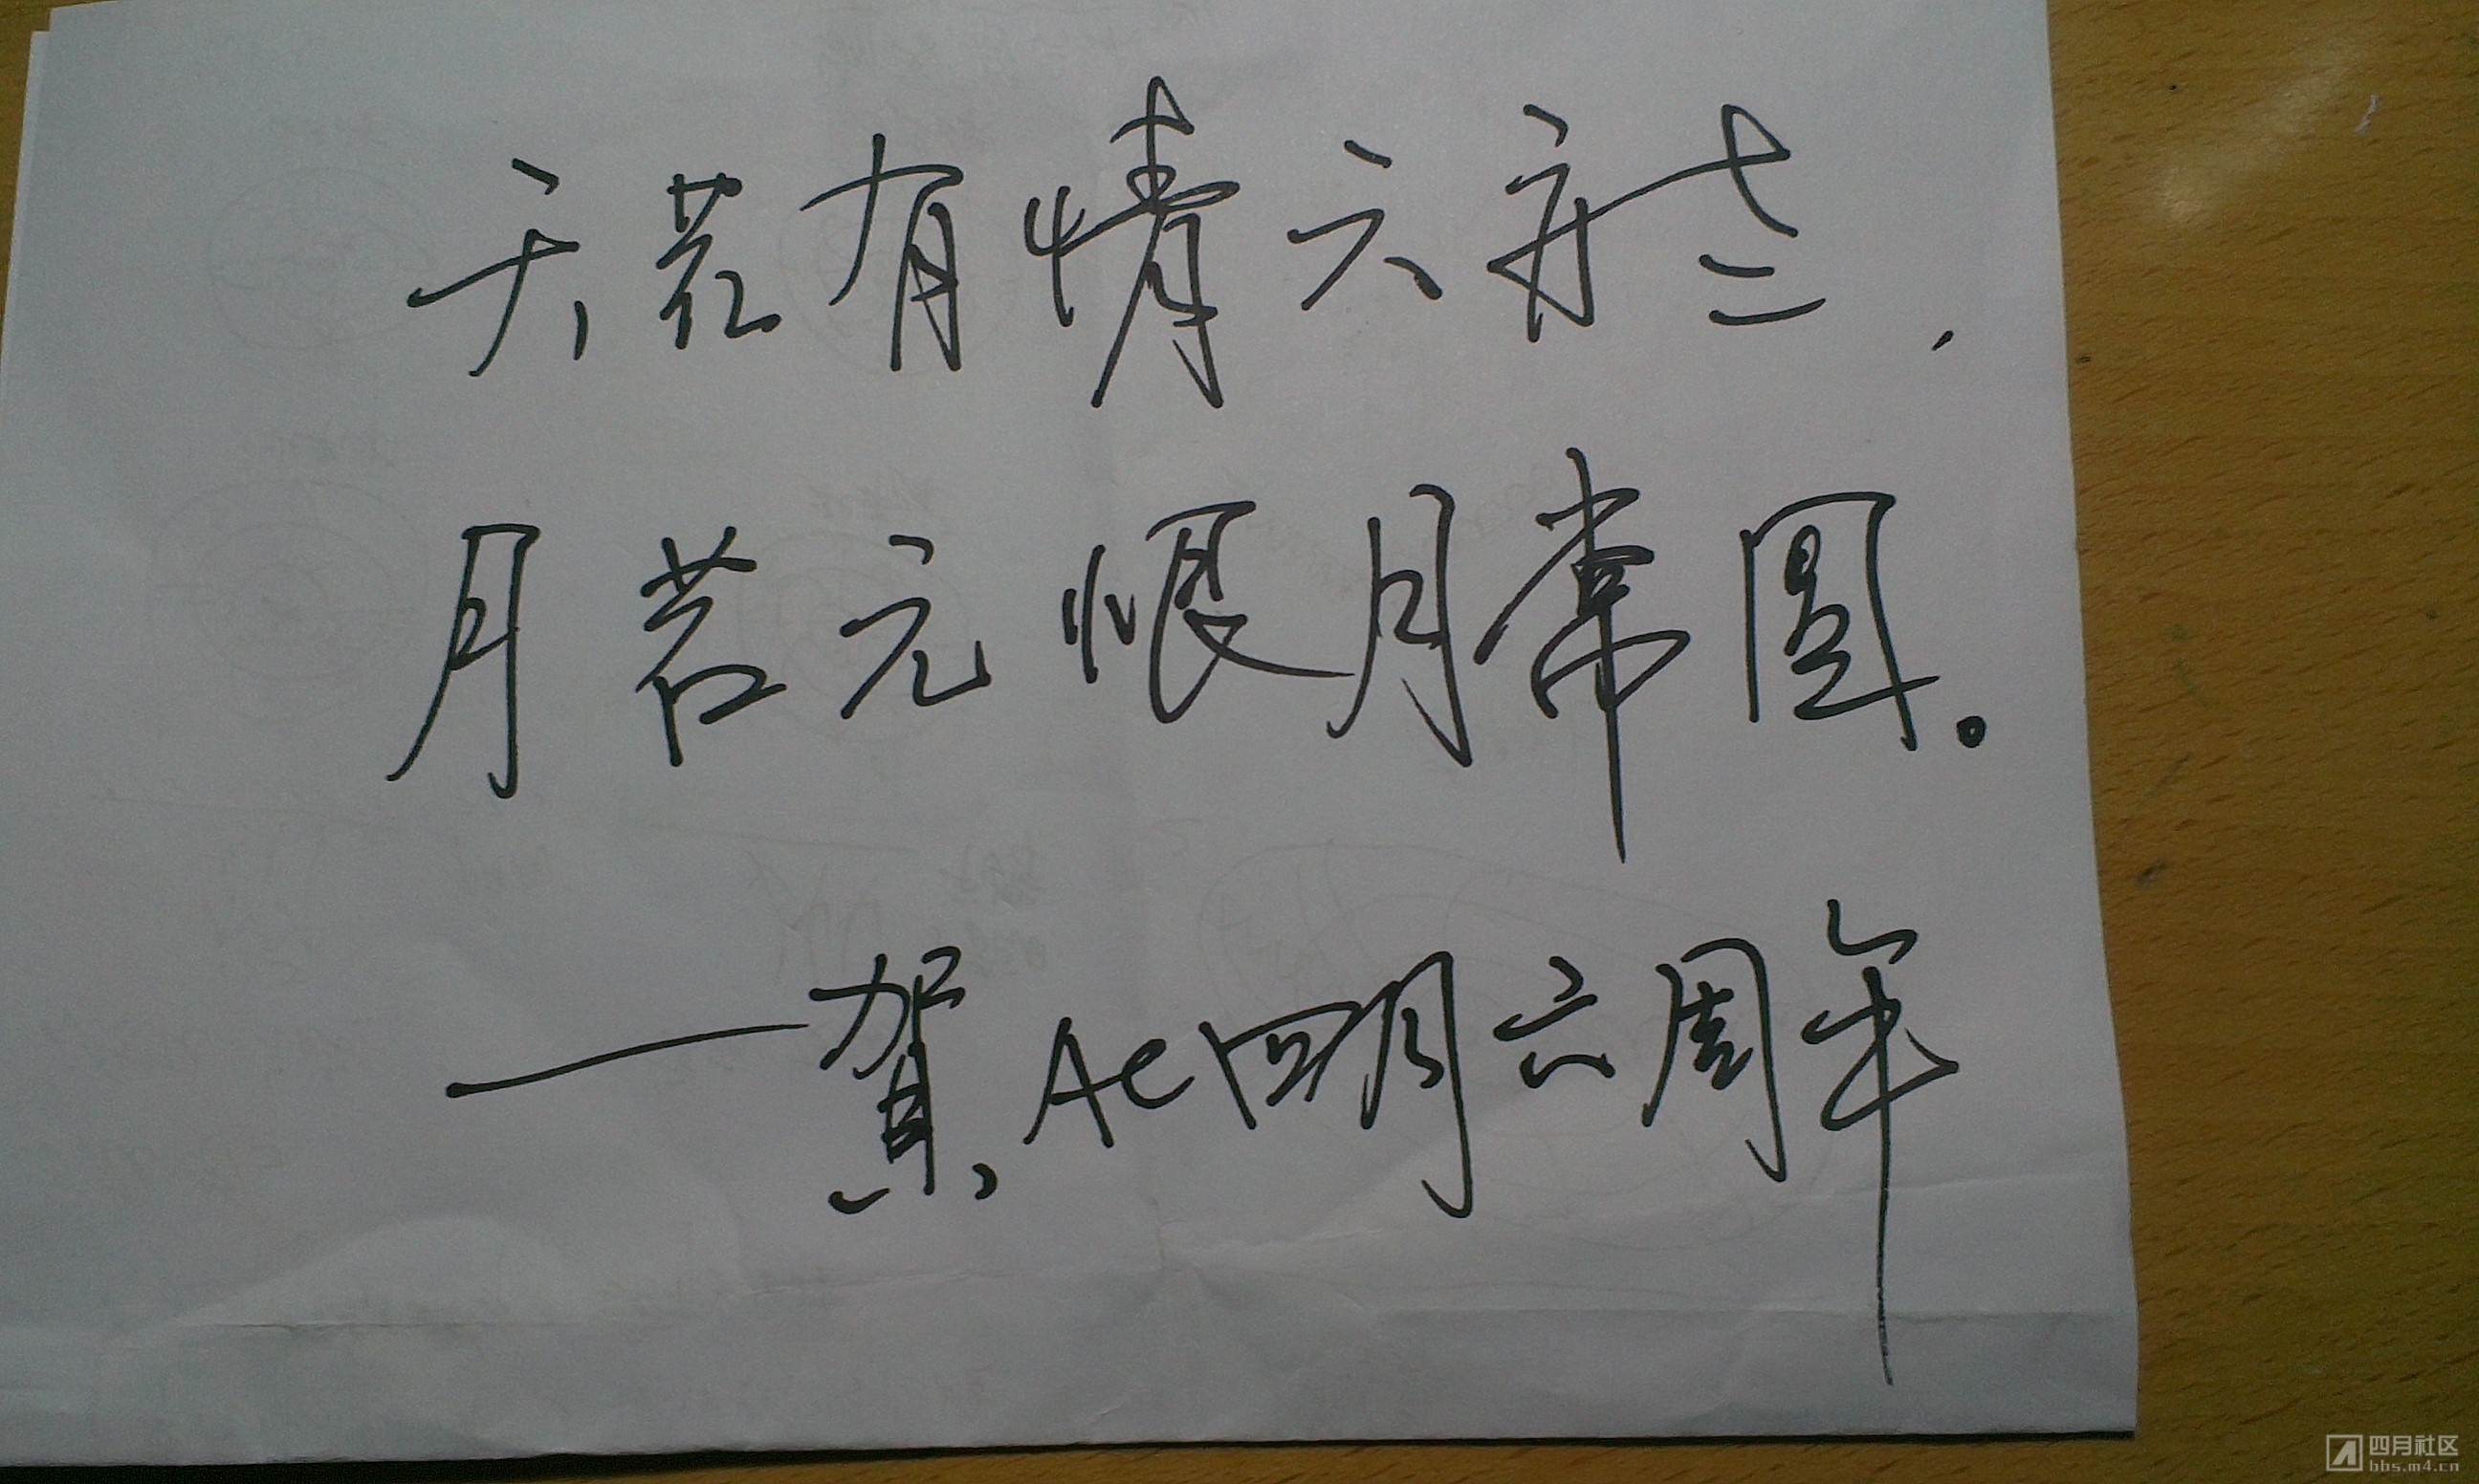 天若有情天亦老,
月若无恨月常圆。
——贺AC四月六周年
四月社区
bbs.m4.cn